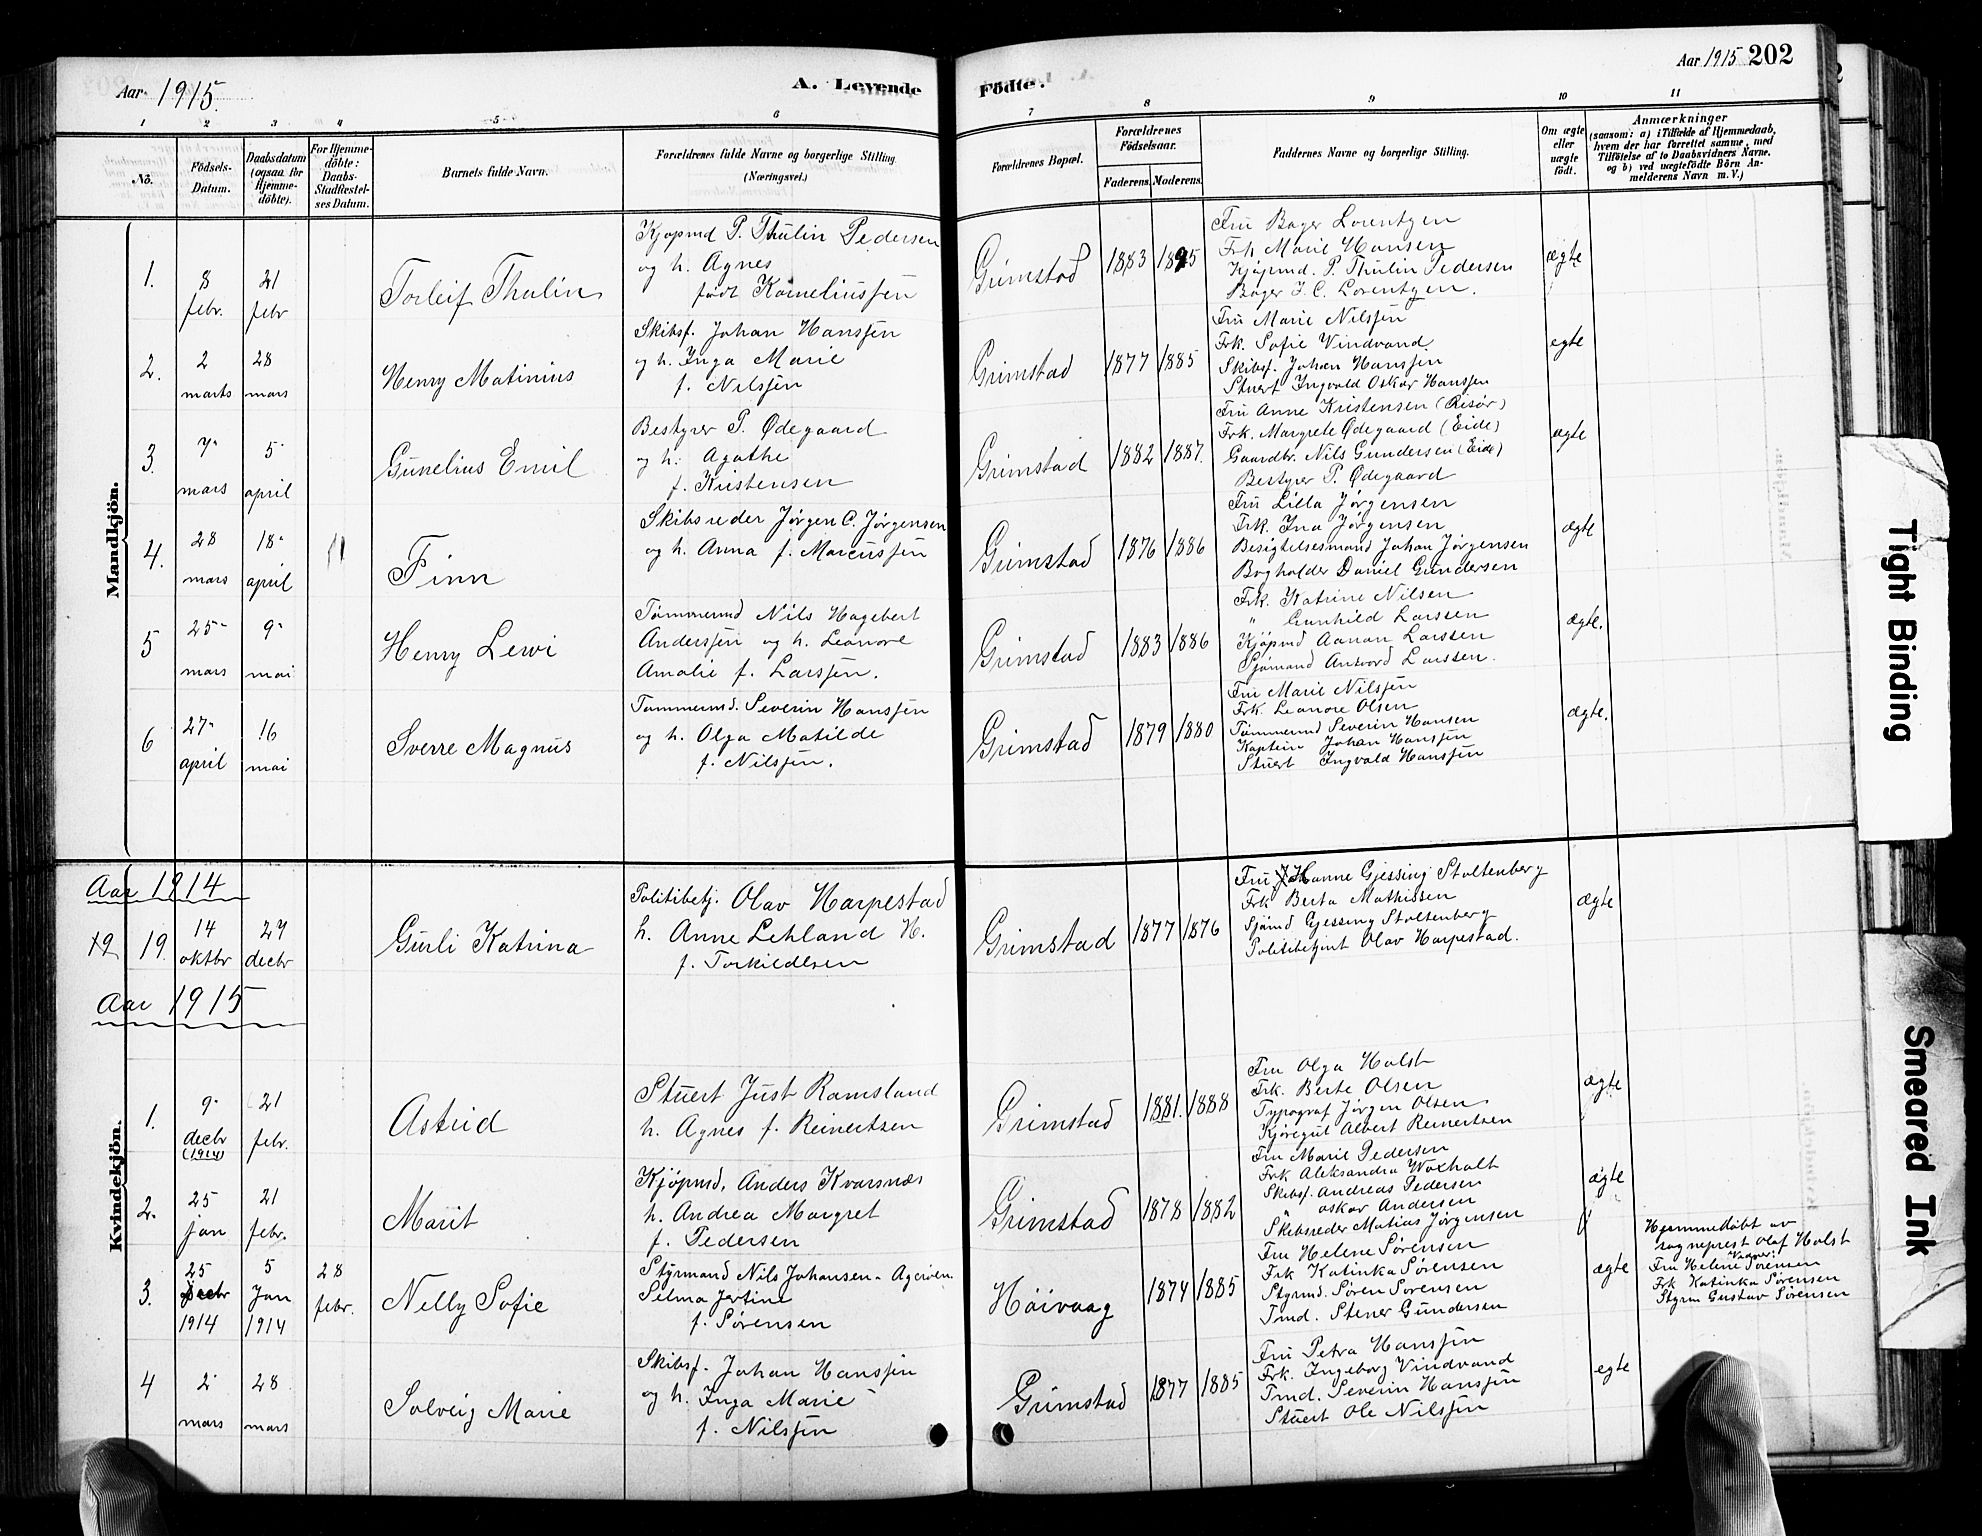 Aar 1915.
A. Levende
Fødte.
Aar 1915 202
1 2 3 4 5 6 7 8 9 10 11
Nô.
Födsels-Datum.
Daabsdatum (ogsaa for Hjemme-döbte).
For Hjemme-döbte: Daabs-Stadfæstel-ses Datum.
Barnets fulde Navn.
Forældrenes fulde Navne og borgerlige Stilling
(Næringsvei.)
Forældrenes Bopæl.
Forældrenes Födselsaar.
Faderens. Moderens.
Faddernes Navne og borgerlige Stilling.
Om ægte eller uægte födt.
Anmærkninger
(saasom: a) i Tilfælde af Hjemmedaab,
hvem der har forrettet samme, med
Tilföielse af to Daabsvidners Navne,
og b) ved uægtefödte Börn An-
melderens Navn m. V.)
Mandkjön.
1. 8 febr. 21 febr
Torleif Thulin
Kjøpmd P. Thulin Pedersen
og h. Agnes
født Korneliussen
Grimstad 1883 1895
Fru Bager Lorentzen
Frk Marie Hansen
Kjøpmd. P. Thulin Pedersen
Bager J. C. Lorentzen.
ægte
2. 2 marts 28 mars
Henry Matinius
Skibsf. Johan Hanssen
og h. Inga Marie
f. Nilssen
Grimstad 1877 1885
Fru Marie Nilssen
Frk. Sofie Vindvand
Skibsf. Johan Hanssen
Stuert Ingvald Oskar Hanssen
egte
3. 7 mars 5 april
Gunelius Emil
Bestyrer P. Ødegaard
og h. Agathe
f. Kristensen
Grimstad 1882 1887.
Fru Anne Kristensen (Risør)
Frk. Margrete Ødegaard (Eide)
Gaardbr. Nils Gundersen (Eide)
Bestyrer P. Ødegaard
ægte
4. 28 mars 18 april
Finn
Skibsreder Jørgen C. Jørgensen
og h. Anna f. Marcussen
Grimstad 1876 1886
Fru Lilla Jørgensen
Frk. Ina Jørgensen
Besigtelsesmand Johan Jørgensen
Bogholder Daniel Gundersen
ægte
5 25 mars 9 mai
Henry Lewi
Tømmermd Nils Hagebert
Anderssen og h. Leonore
Amalie f. Larssen.
Grimstad 1883 1886
Frk. Katrine Nilsen
" Gunhild Larssen
Kjøpmd Aanon Larssen
Sjømand Larssen.
ægte.
6 27 april 16 mai
Sverre Magnus
Tømmermd. Severin Hanssen
og h. Olga Matilde
f. Nilssen.
Grimstad 1879 1880
Fru Marie Nilssen
Frk. Leonore Olsen
Tømmermd Severin Hansen
Kaptein Johan Hanssen
Stuert Ingvald Hanssen
ægte.
Kvindekjön.
Aar 1914
19 19. 14 oktbr 27 decbr
Gurli Katrina
Politibetj. Olav Harpestad
h. Anne Lehland H.
f. Torkildsen
Grimstad 1877 1876
Fru Hanne Gjessing Stoltenberg
Frk Berta Mathissen
Sjømd Gjessing Stoltenberg
Politibetjent Olav Harpestad.
ægte
Aar 1915
1. 9 decbr (1914) 21 febr.
Astrid
Stuert Just Ramsland
h. Agnes f. Reinertsen
Grimstad 1881. 1888
Fru Olga Holst
Frk. Berte Olsen
Typograf Jørgen Olsen
Kjøregut Albert Reinertsen
ægte
2. 25 jan 21 febr.
Marit
Kjøpmd. Anders Kvarsnæs
h. Andrea Margret
f. Pedersen
Grimstad 1878 1882
Fru Marie Pedersen
Frk Aleksandra Woxholt
Skibsf. Andreas Pedersen
" Oskar Andersen
Skibsreder Matias Jørgensen
ægte
3. 25 decbr 1914 5 Jan 1914 28 febr.
Nelly Sofie
Styrmand Nils Johansen
Selma Jertine
f. Sørensen
Höivaag 1874 1885
Fru Helene Sørensen
Frk Katinka Sørensen
Styrmd. Søren Sørensen
Tmd. Stener Gundersen
ægte
Hjemmedøbt av
sogneprest Olaf Holst
Vidner:
Fru Helene Sørensen
Frk Katinka Sørensen
Styrm Gustav Sørensen
4 2 mars 28 mars
Solveig Marie
Skibsf. Johan Hanssen
og h. Inga Marie
f. Nilssen
Grimstad 1877 1885
Fru Petra Hanssen
Frk. Ingeborg Vindvand
Tmd. Severin Hanssen
Stuert Ole Nilssen
egte
Tight Binding
Smeared Ink